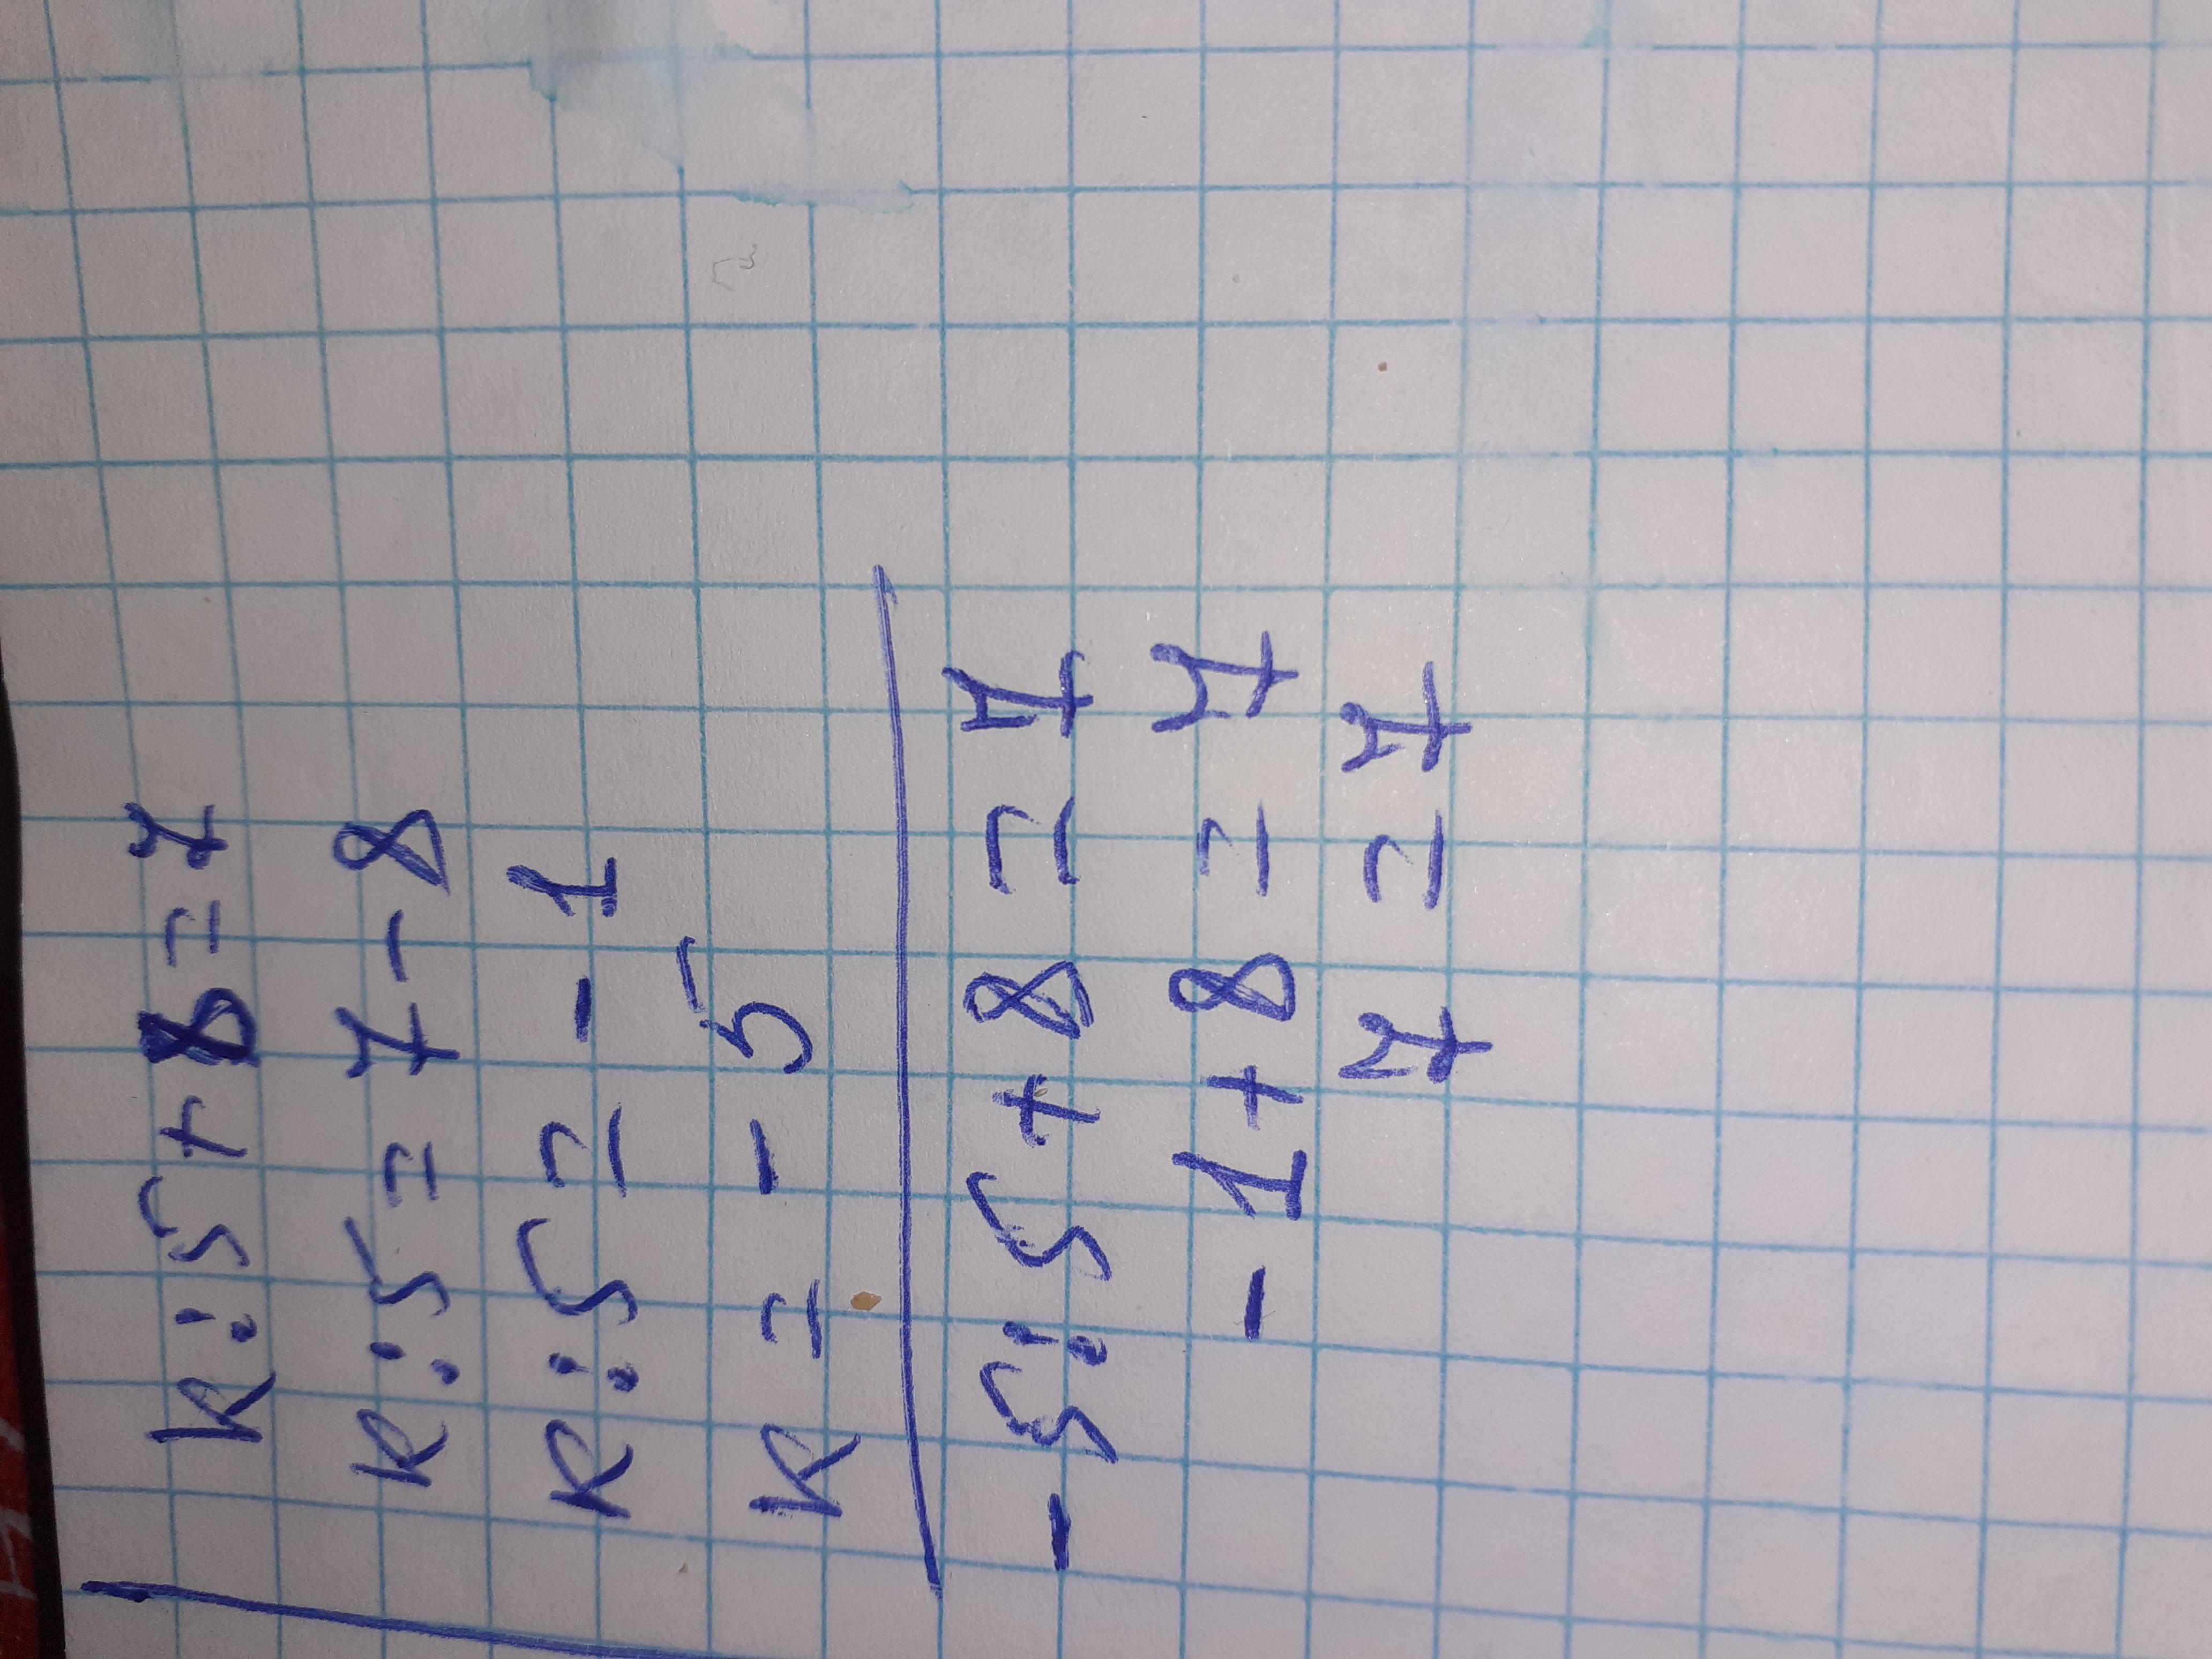 k:5+8=7
k:5=7-8
k:5=-1
k=-5
-5:5+8=7
-1+8=7
7=7